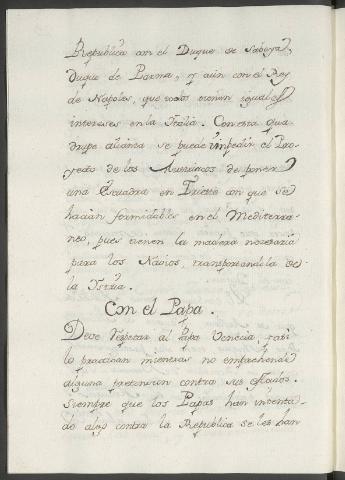 Republica con el Duque de Saboya,
Duque de Parma, y aun con el Rey
de Napoles, que todos tienen iguales
intereses en la Italia. Con esta qua
drupe alianza se puede impedir el Pro
yecto de los Austriacos de poner
una Escuadra en Trieste con que se
harian formidables en el Mediterra
neo, pues tienen la madera necesaria
para los Navios, transportandola de
la Istria.
Con el Papa.
Deve respetar al Papa Venecia, i asi
lo practican mientras no emprehende
alguna pretencion contra sus Estados.
Siempre que los Papas han intenta
do algo contra la Republica se les han